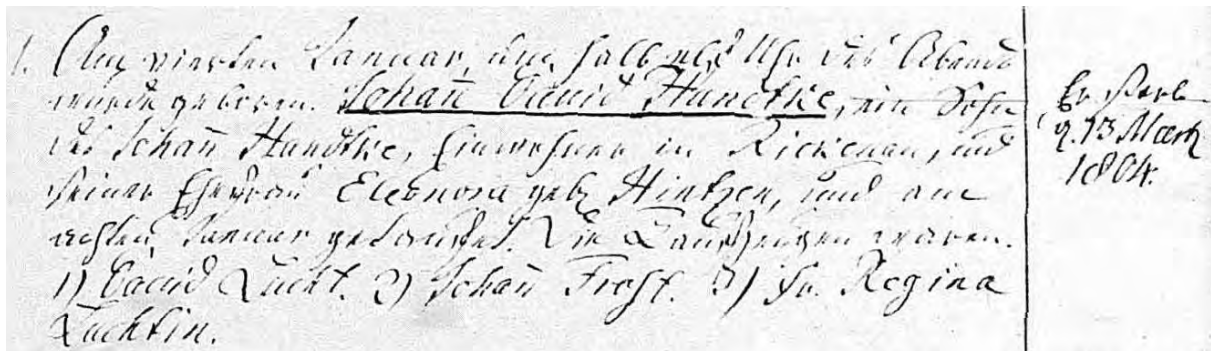 1. Am vierten Januar, um halb elf Uhr des Abends
wurde geboren Johañ David Handtke, ein Sohn
des Johañ Handtke, Einwohner in Rickenau, und
seiner Ehefrau Eleonora geb. Hintzen, und am
achten Januar getaufet. Die Taufzeugen waren.
1) David Lucht. 2) Johañ Frost. 3) Fr. Regina
Luchtin.
Er starb
d. 13 Maerz
1804.